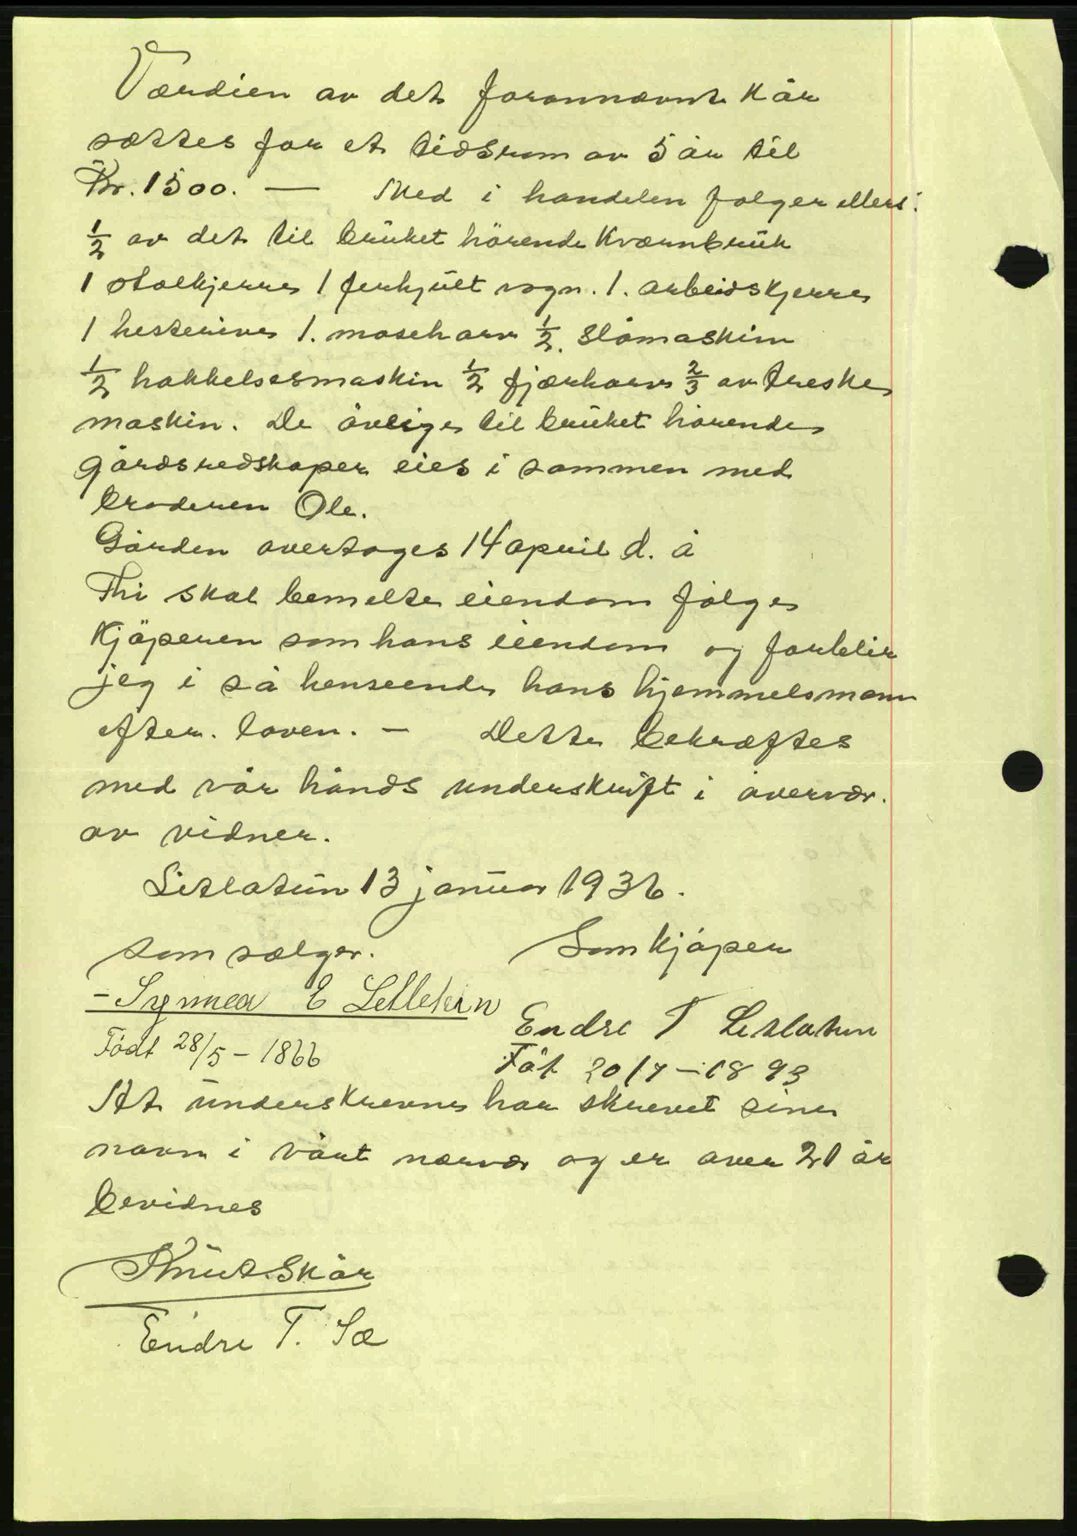 Værdien av det forannævnte kår
sættes for et tidsrom av 5 år til
Kr. 1500. — Med i handelen følger ellers:
1/2 av det til bruket hörende Kværnbruk
1 stolkjerre 1 firhjult vogn. 1. arbeidskjerre
1 hesterive 1. moseharv 1/2. Slåmaskin
1/2 hakkelsesmaskin 1/2 fjærharv 2/3 av treske
maskin. De övrige til bruket hörende
gårdsredskaper eies i sammen med
broderen Ole.
Gården overtages 14 april d. å
Thi skal bemelte eiendom følge
Kjøperen som hans eiendom og forblir
jeg i så henseende hans hjemmelsmann
efter. loven. — Dette bekræftes
med vår hånds underskrift i overvær.
av vidner.
Litlatun 13 januar 1936.
som sælger. Som kjøper
- Synnea E Litletun Endre T Litlatun
Født 28/5 - 1866 Föt 20/7 - 1893
At underskrevne har skrevet sine
navn i vårt nærvær og er over 21 år
bevidnes
Knut Skår
Endre T. Sæ